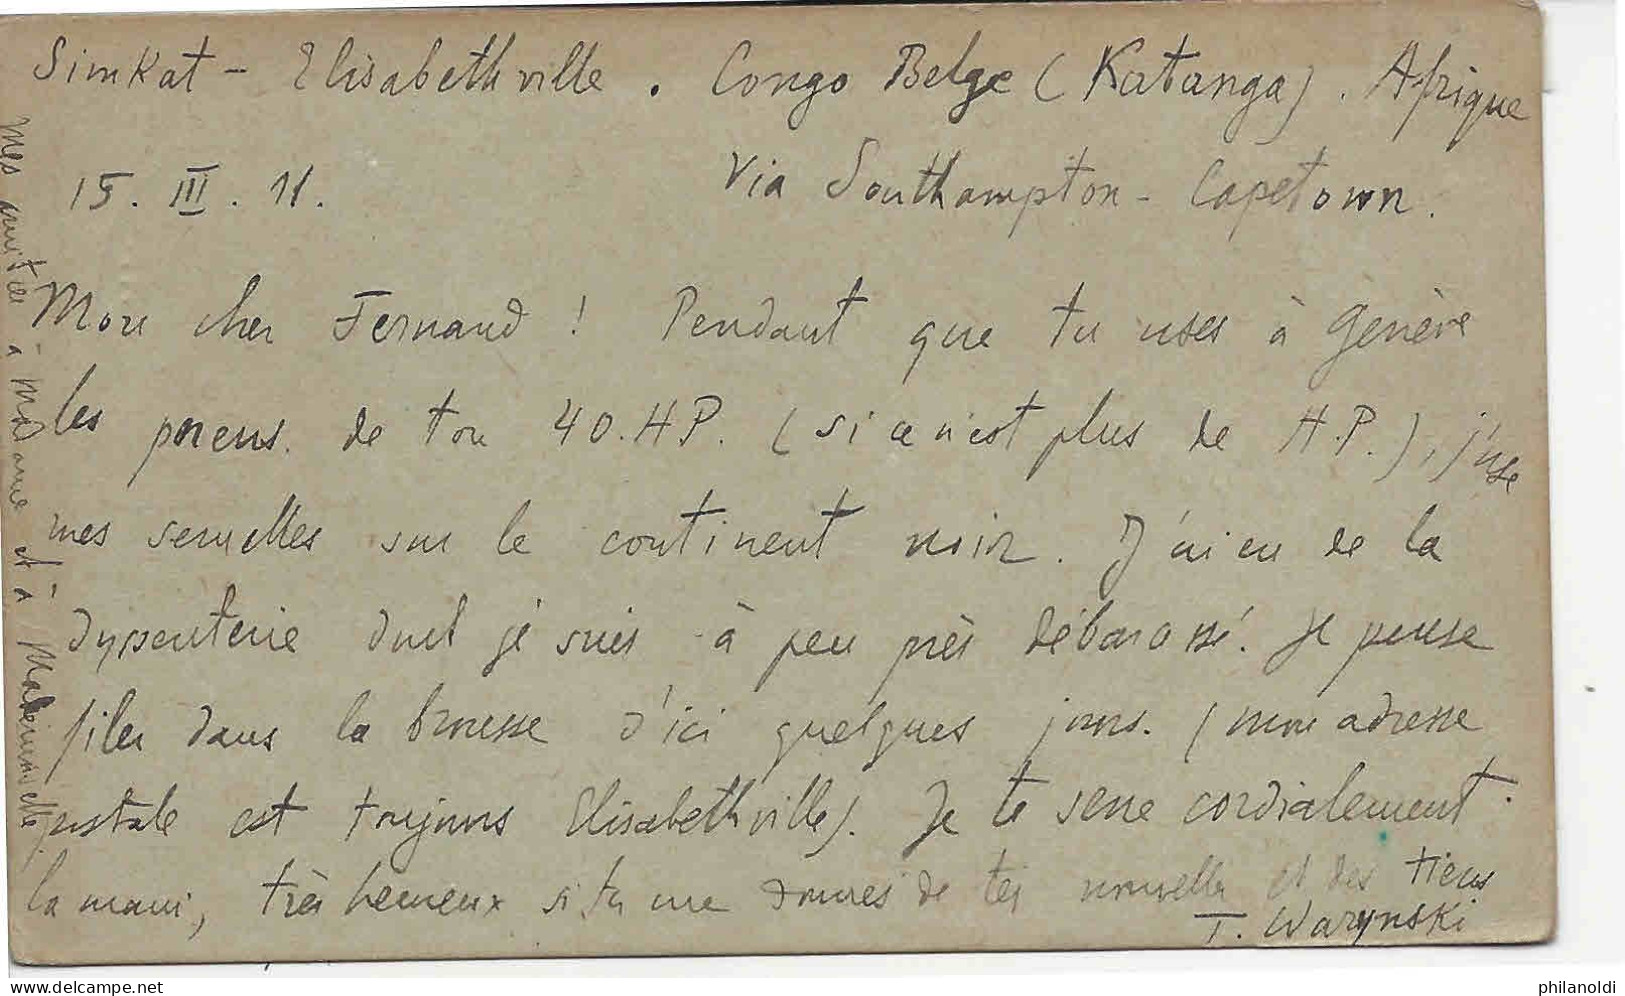 Simkat - Elisabethville. Congo Belge (Katanga). Afrique
15. III. 11. Via Southampton - Capetown.
Mon cher Fernand ! Pendant que tu uses à Genève
les pneus. de ton 40.HP. (si ce n'est plus de H.P.), j'use
mes semelles sur le continent noir. J'ai eu de la
dyssenterie dont je suis à peu près débarassé. Je pense
filer dans la brousse d'ici quelques jours. (mon adresse
postale est toujours Elisabethville). Je te serre cordialement
la main, très heureux si tu me donnes de tes nouvelles et des tiens
T. Warynski
Mes amitiés à Madame et à Mademoiselle
philanoldi